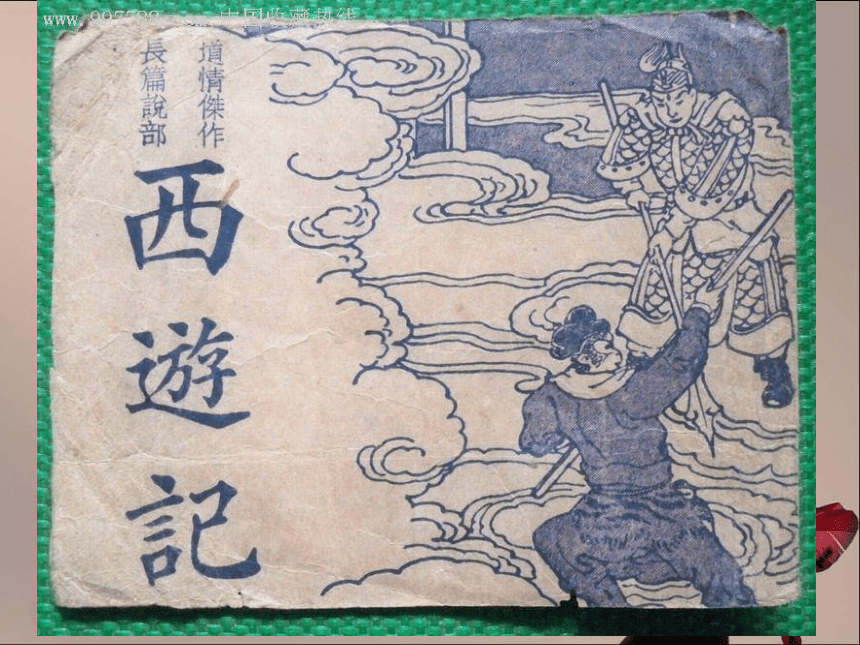 中国收藏热线
道情傑作
長篇說部
西遊記